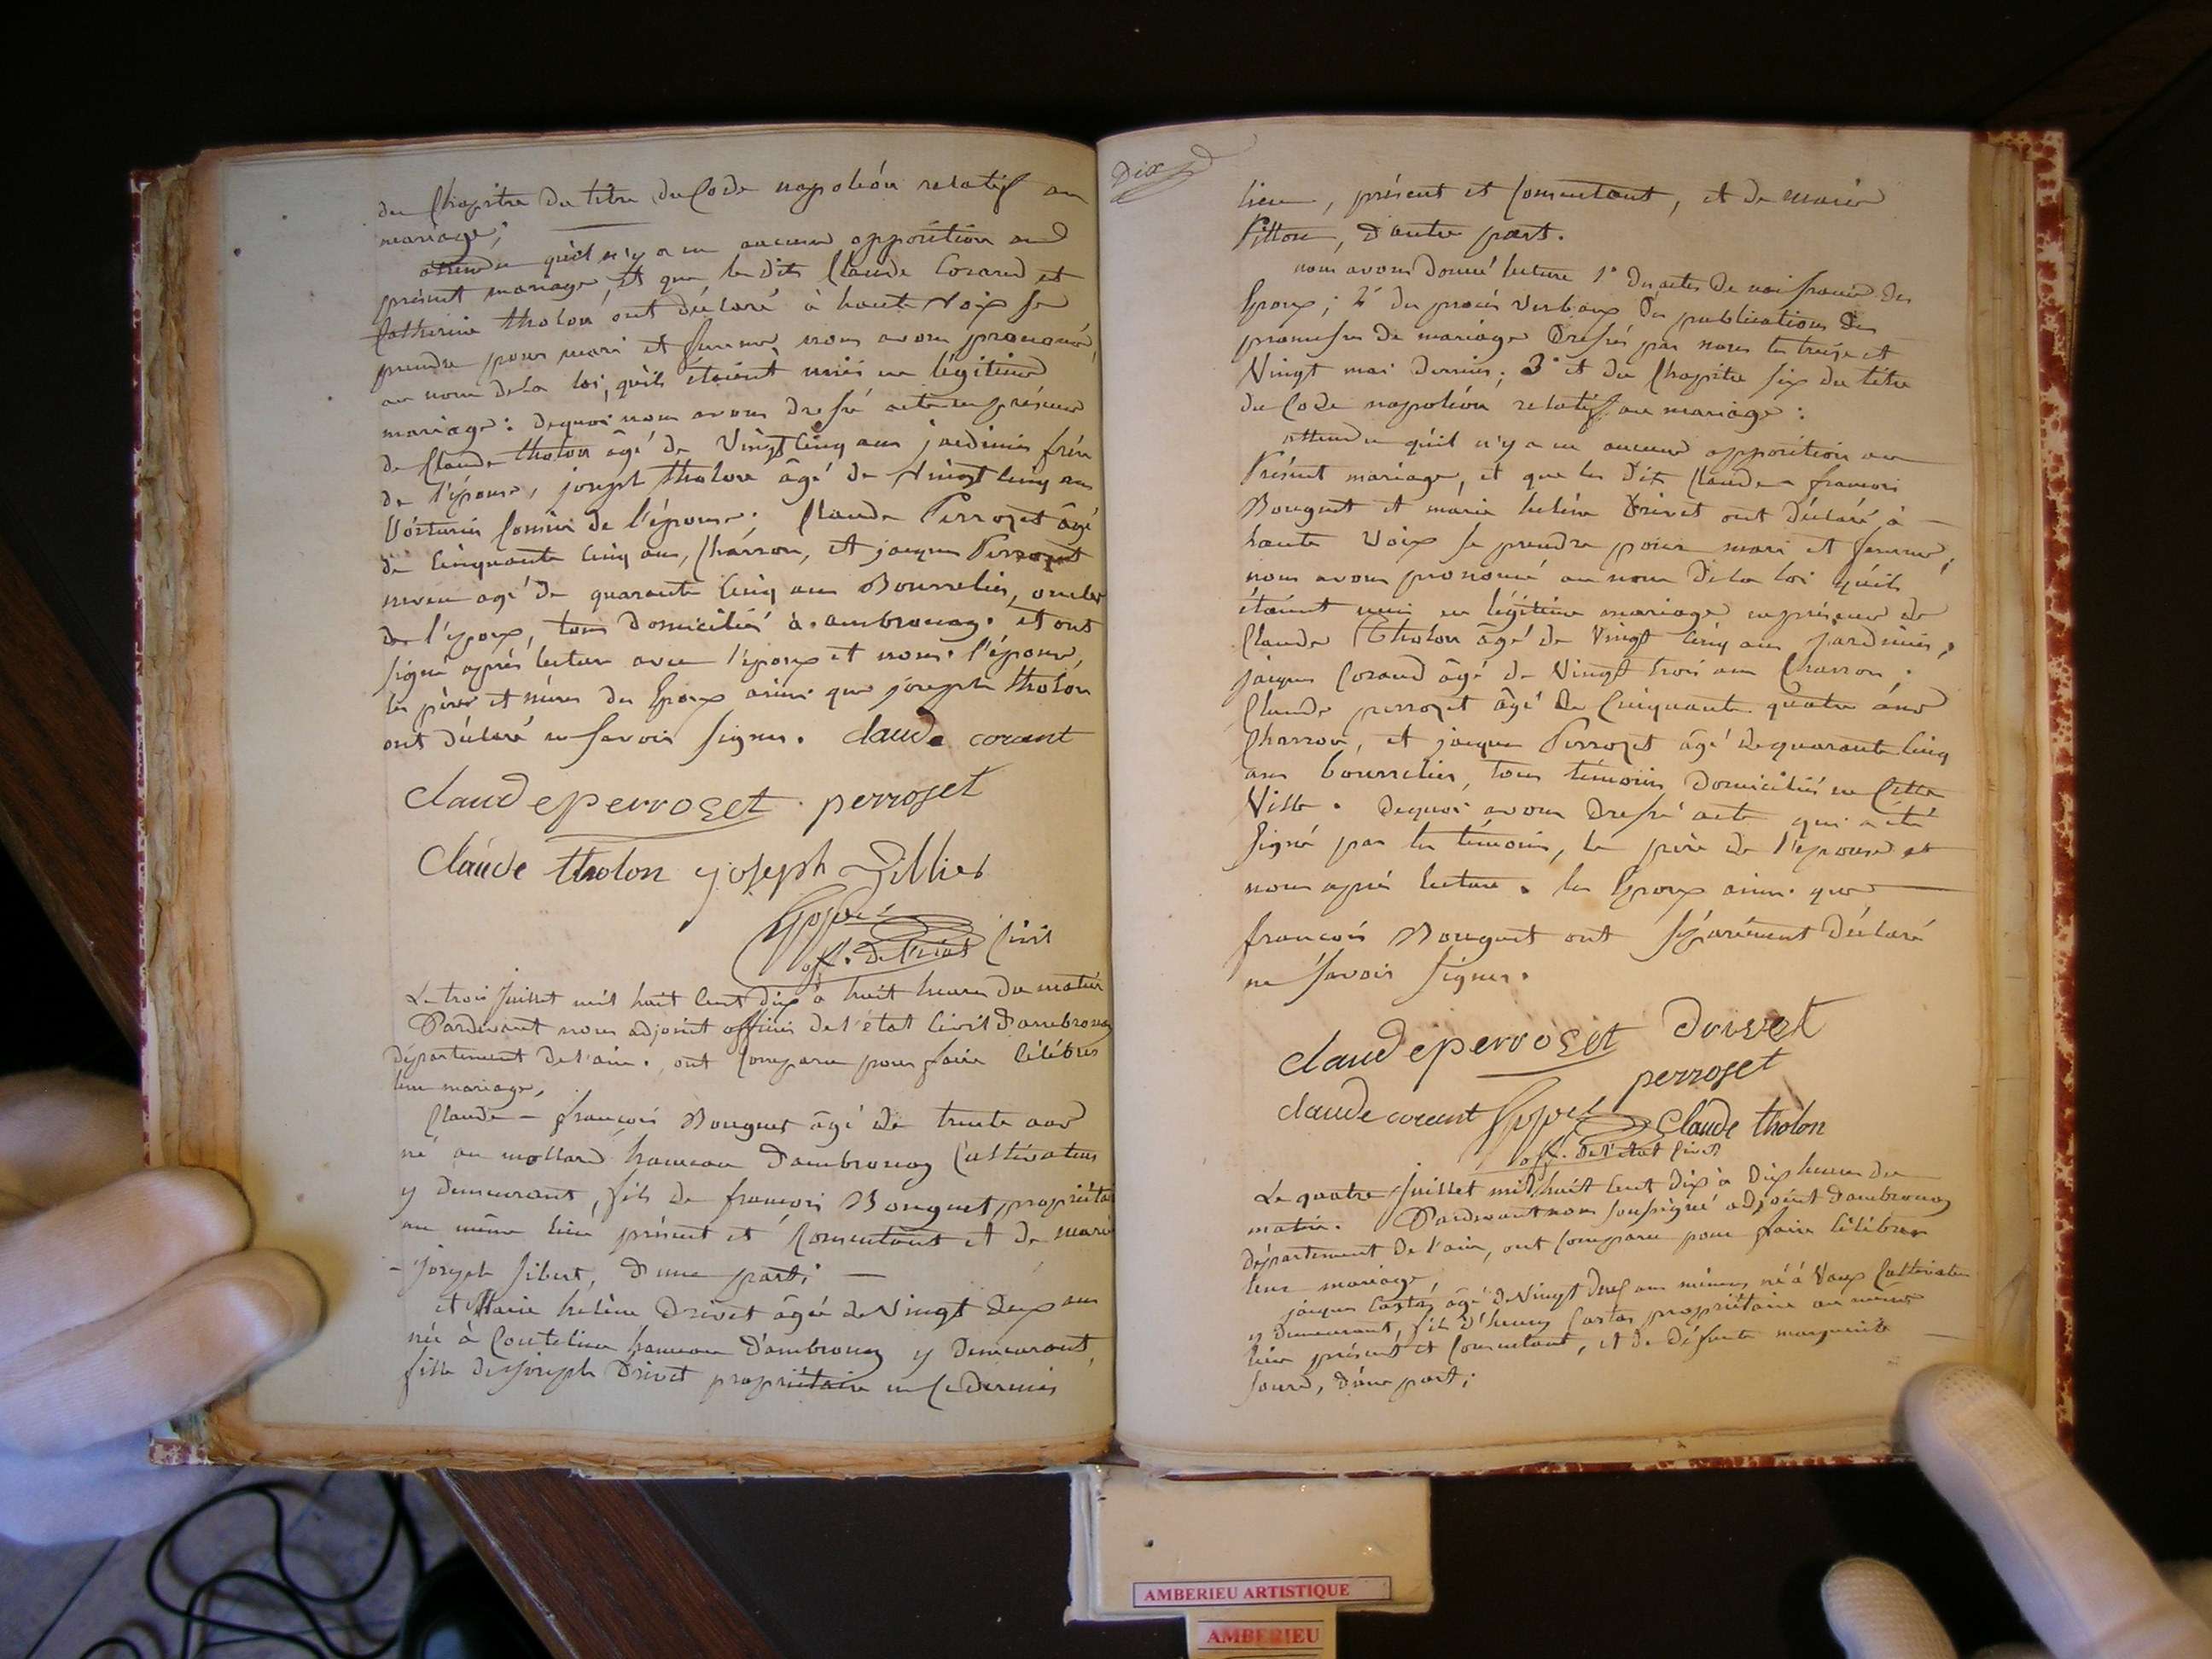 du Chapitre du titre du Code napoléon relatif au
mariage;
attendu qu'il n'y a eu aucune opposition au
présent mariage, et que les dits Claude Corand et
Catherine tholon ont déclaré à haute voix se
prendre pour mari et femme, nous avons prononcé,
au nom de la loi, qu'ils étoient unis en légitime
mariage: dequoi nous avons dressé acte en présence
de Claude tholon âgé de Vingt Cinq ans jardinier frère
de l'épouse, joseph tholon âgé de Vingt cinq ans
Voiturier Cousin de l'épouse; Claude Perrozet âgé
de Cinquante Cinq ans, Charron, et jacques Perrozet
neveu agé de quarante Cinq ans Bourrelier, oncles
de l'époux, tous domiciliés à ambronay. et ont
signé après lecture avec l'époux et nous. l'épouse,
les pères et mères des Epoux ainsi que joseph tholon
ont déclaré ne savoir signer. claude corant
claude perroset perroset
Claude tholon joseph
off. de l'état Civil
Le trois Juillet mil huit Cent dix à huit heures du matin
Pardevant nous adjoint officier de l'état Civil d'ambronay
département de l'ain, ont Comparu pour faire Célébrer
leur mariage,
Claude - françois Bouguet âgé de trente ans
né au mollard hameau d'ambronay Cultivateur
y demeurant, fils de françois Bouguet, propriétai
au même lieu présent et Consentant et de marie
- joseph Jibert, d'une part; -
et Marie helène Drivet âgée de Vingt Deux ans
née à Coutelieu hameau d'ambronay y demeurant,
fille de joseph Drivet propriétaire en Ce dernier
Dix
lieu, présent et Consentant, et de marie
Pitton, d'autre part.
nous avons donné lecture 1° des actes de naissance des
Epoux; 2° des procès verbaux des publications des
promesses de mariage dressés par nous les treize et
Vingt mai dernier; 3° et du Chapitre six du titre
du Code napoléon relatif au mariage:
attendu qu'il n'y a eu aucune opposition au
Présent mariage, et que les dits Claude - francois
Bouguet et marie helène Drivet ont déclaré à -
haute Voix se prendre pour mari et femme;
nous avons prononcé au nom de la loi qu'ils
étoient unis en légitime mariage en présence de
Claude Tholon âgé de Vingt Cinq ans jardinier,
jacques Corand âgé de Vingt trois ans Charron,
Claude perrozet âgé de Cinquante quatre ans
Charron, et jacques Perrozet âgé de quarante Cinq
ans bourrelier, tous témoins domiciliés en Cette
Ville. Dequoi avons dressé acte qui a été
signé par les témoins, le père de l'épouse et
nous après lecture. les Epoux ainsi que
françois Bouguet ont séparément déclaré
ne savoir signer.
claude perroset Drivet
perroset
claude corant Claude tholon
off. de l'état Civil
Le quatre Juillet mil huit Cent dix à Dix heures du
matin. Pardevant nous soussigné adjoint d'ambronay
département de l'ain, ont Comparu pour faire Célébrer
leur mariage,
jacques Castas âgé de Vingt ans mineur né à Vaux Cultivateur
y demeurant, fils d'henry Castas propriétaire au même
lieu présent et Consentant, et de défunte marguerite
sourd, d'une part;
AMBERIEU ARTISTIQUE
AMBERIEU